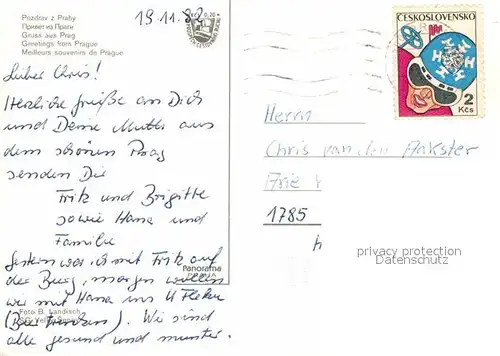 Pozdrav z Prahy
Привет из Праги
Gruss aus Prag
Greetings from Prague
Meilleurs souvenirs de Prague
19.11.82
Lieber Chris!
Herzliche Grüße an Dich
und Deine Mutti aus
dem schönen Prag
senden Dir
Fritz und Brigitte
sowie Hana und
Familie
Gestern war ich mit Fritz auf
der Burg, morgen wollen
wir mit Hana ins U Fleku
(Bier trinken). Wir sind
alle gesund und munter.
Panorama
PRAHA
Foto B. Landisch
ČESKOSLOVENSKO
2
Kčs
Herrn
Chris van den Aakster
Arie
1785
privacy protection
Datenschutz